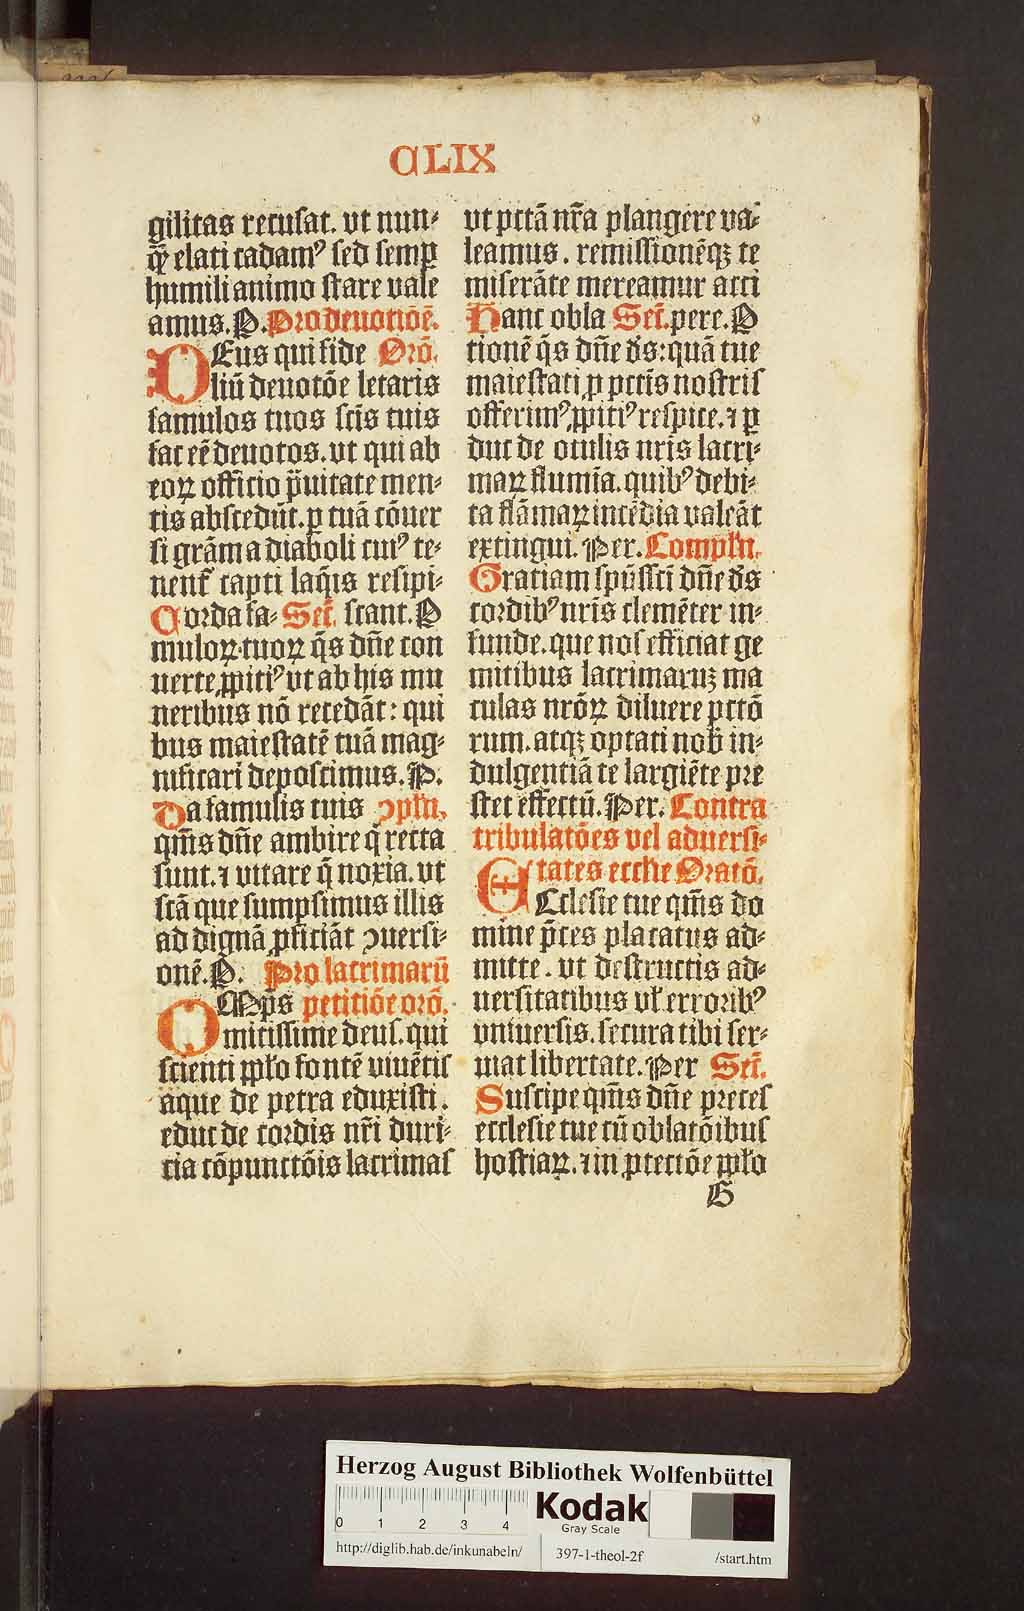 CLIX
gilitas recusat. vt nun⸗
q̄ꝫ elati cadamꝰ sed semꝑ
humili animo stare vale
amus. P. Pro deuotiōē.
DEus qui fide Orō.
liū deuotōe letaris
famulos tuos scīs tuis
fac eē deuotos. vt qui ab
eoꝝ officio p̄uitate men⸗
tis abscedūt. ꝑ tuā cōuer
si grām a diaboli cuiꝰ te⸗
nent̄ capti laq̄is resipi⸗
Corda fa⸗ Sec̄. scant. P
muloꝝ tuoꝝ q̄s dn̄e con
uerte ꝓpitiꝰ vt ab his mu
neribus nō recedāt: qui
bus maiestatē tuā mag⸗
nificari deposcimus. P.
Da famulis tuis ↄpłn̄.
qm̄s dn̄e ambire q̄ recta
sunt. ⁊ vitare q̄ noxia. vt
scā que sumpsimus illis
ad dignā ꝓficiāt ↄuersi⸗
onē. P. Pro lacrimarū
OMps petitiōe orō.
mitissime deus. qui
scienti ppło fontē viuētis
aque de petra eduxisti.
educ de cordis nr̄i duri⸗
cia cōpunctōis lacrimas
vt pctā nr̄a plangere va⸗
leamus. remissionēqꝫ te
miserāte mereamur acci
Hanc obla Sec̄. pere. P
tionē q̄s dn̄e d̄s: quā tue
maiestati ꝓ pctīs nostris
offerimꝰ ꝓpitiꝰ respice. ⁊ ꝓ
duc de oculis nris lacri⸗
maꝝ flumīa. quibꝰ debi⸗
ta flāmaꝝ incēdia valeāt
extingui. Per. Compln̄.
Gratiam spūssci dn̄e d̄s
cordibꝰ nris clemēter in⸗
funde. que nos efficiat ge
mitibus lacrimaruꝫ ma
culas nrōꝝ diluere pctō
rum. atqꝫ optati nob̄ in⸗
dulgentiā te largiēte pre
stet effectū. Per. Contra
tribulatōes vel aduersi⸗
tates eccłie Oratō.
ECclesie tue qm̄s do
mine p̄ces placatus ad⸗
mitte. vt destructis ad⸗
uersitatibus vł erroribꝰ
vniuersis. secura tibi ser⸗
uiat libertate. Per Sec̄.
Suscipe qm̄s dn̄e preces
ecclesie tue cū oblatōibus
hostiaꝝ. ⁊ in ꝓtectōe ppło
G
Herzog August Bibliothek Wolfenbüttel
0 1 2 3 4
Kodak
Gray Scale
http://diglib.hab.de/inkunabeln/ 397-1-theol-2f /start.htm